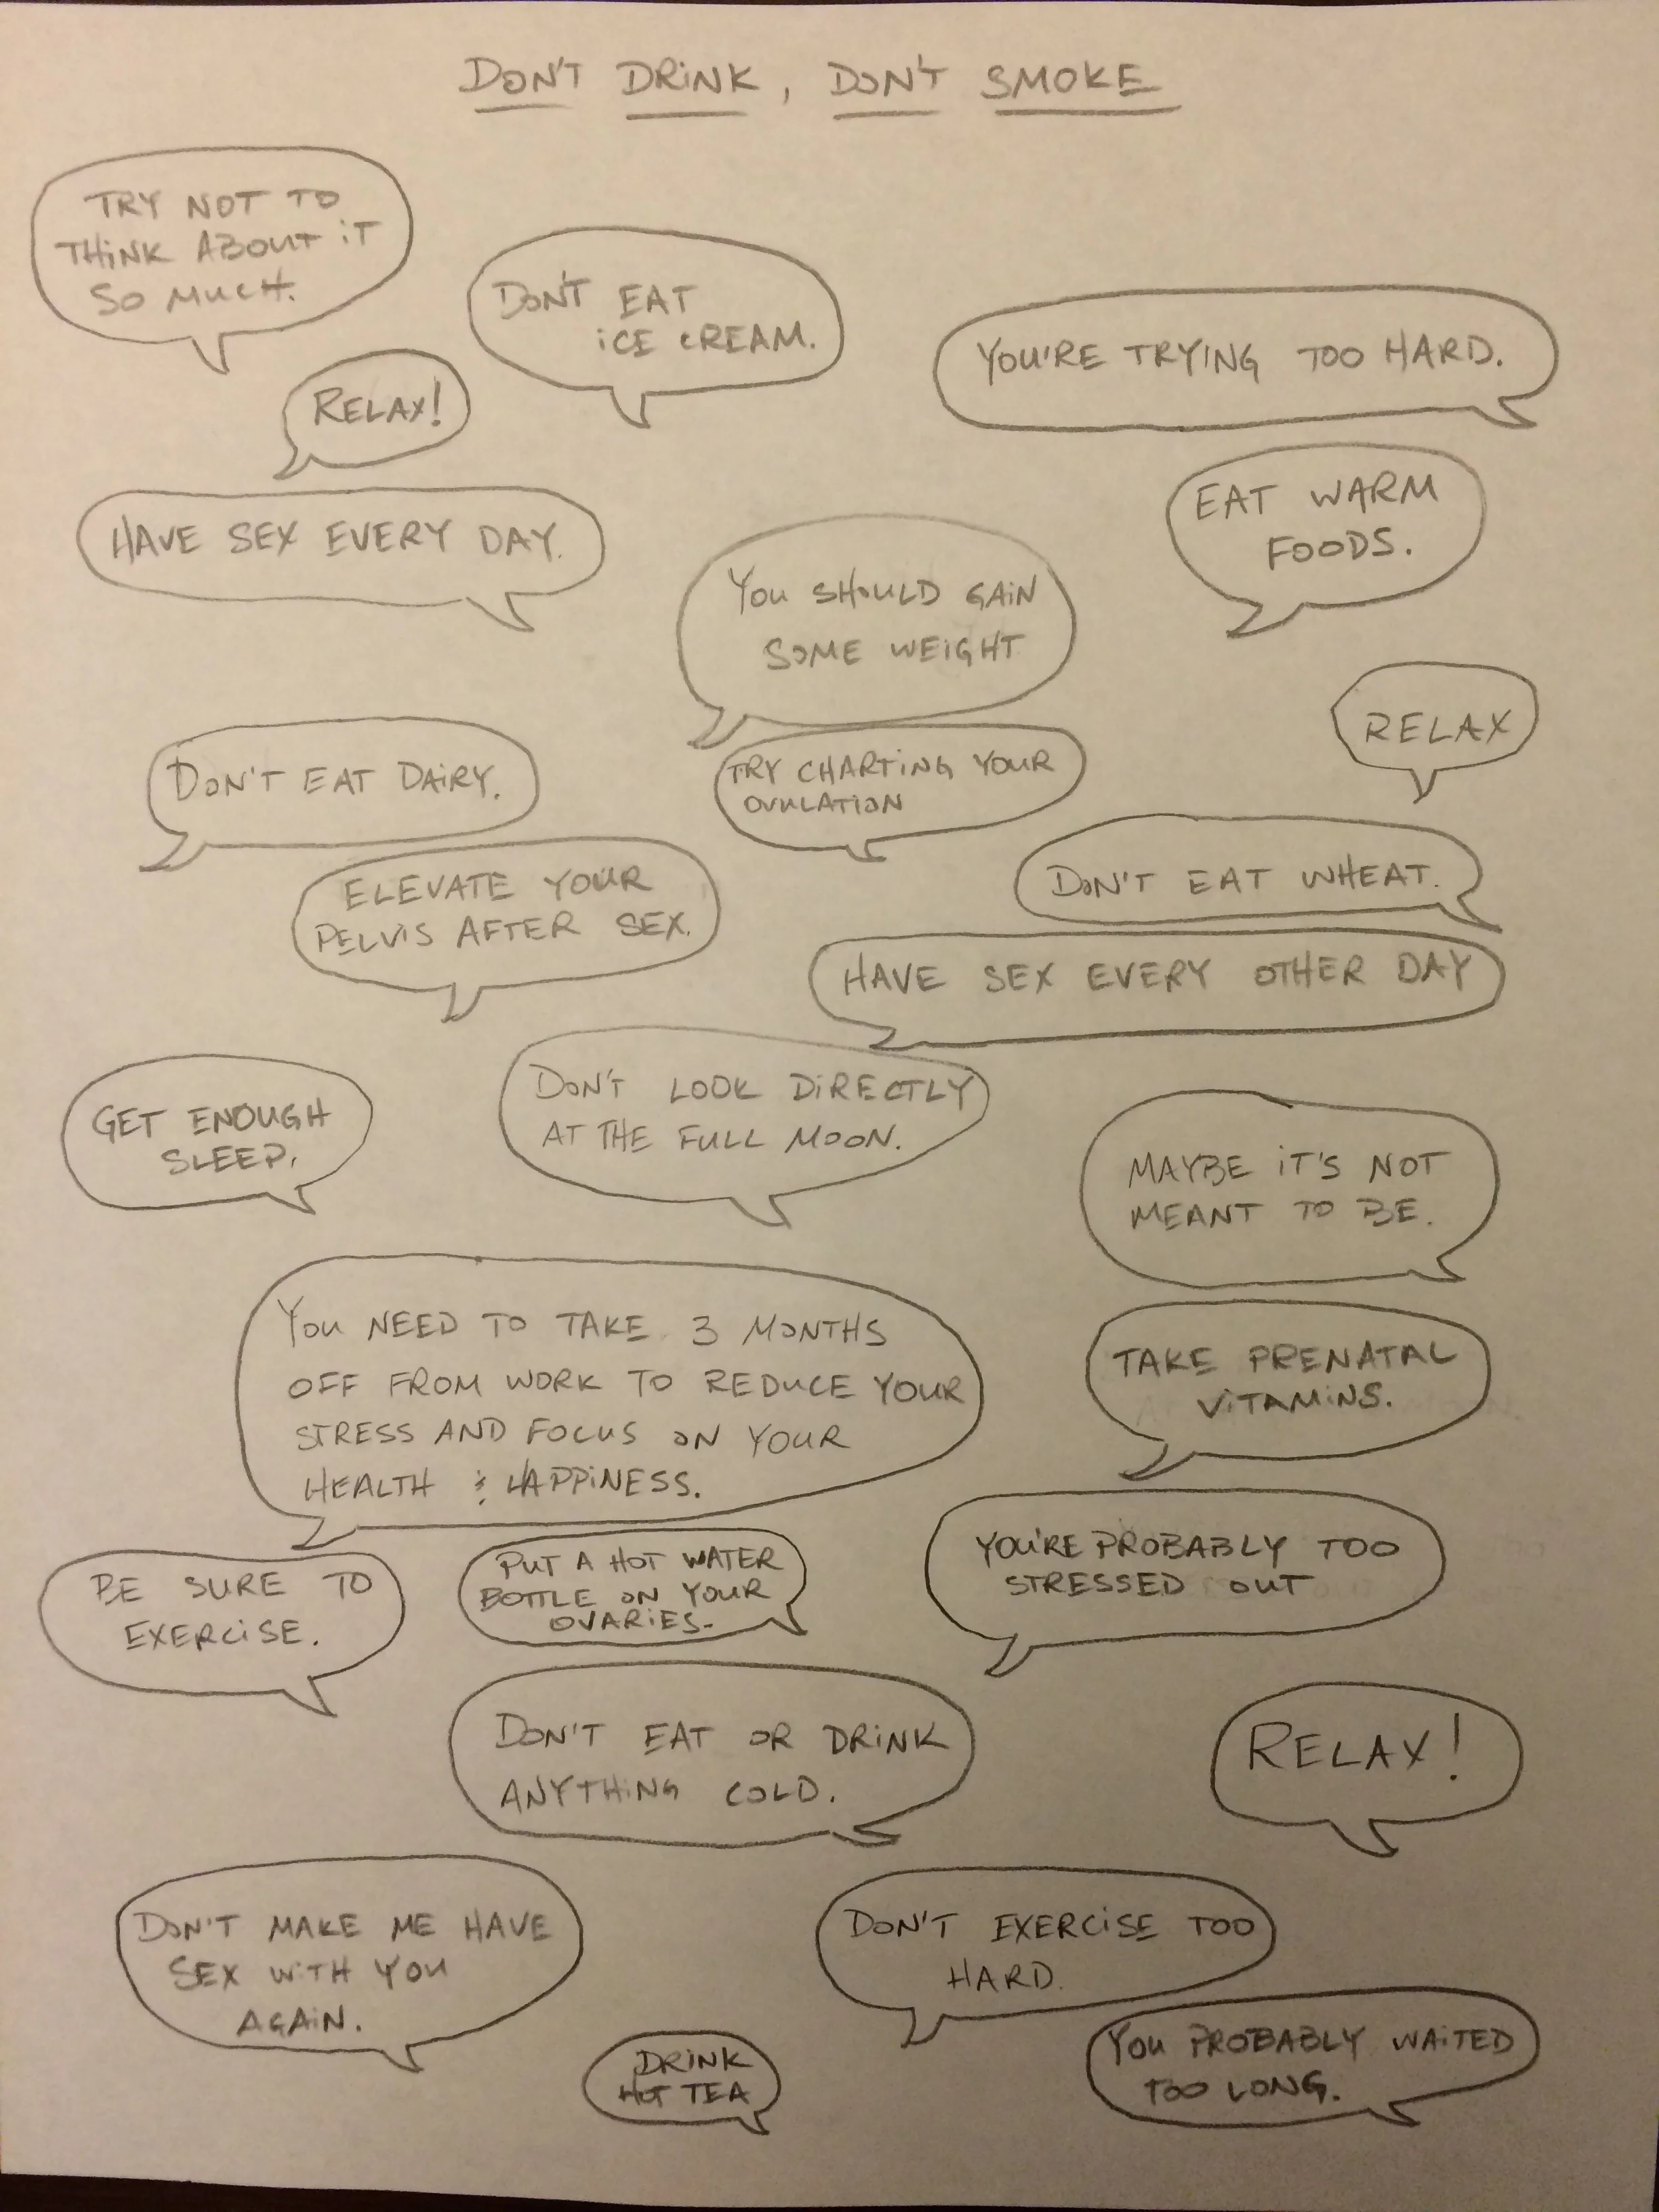 DON'T DRINK, DON'T SMOKE
TRY NOT TO
THINK ABOUT IT
SO MUCH.
DON'T EAT
ICE CREAM.
YOU'RE TRYING TOO HARD.
RELAX!
EAT WARM
FOODS.
HAVE SEX EVERY DAY.
YOU SHOULD GAIN
SOME WEIGHT
RELAX
DON'T EAT DAIRY.
TRY CHARTING YOUR
OVULATION
DON'T EAT WHEAT.
ELEVATE YOUR
PELVIS AFTER SEX.
HAVE SEX EVERY OTHER DAY
GET ENOUGH
SLEEP.
DON'T LOOK DIRECTLY
AT THE FULL MOON.
MAYBE IT'S NOT
MEANT TO BE.
YOU NEED TO TAKE 3 MONTHS
OFF FROM WORK TO REDUCE YOUR
STRESS AND FOCUS ON YOUR
HEALTH & HAPPINESS.
TAKE PRENATAL
VITAMINS.
BE SURE TO
EXERCISE.
PUT A HOT WATER
BOTTLE ON YOUR
OVARIES.
YOU'RE PROBABLY TOO
STRESSED OUT
DON'T EAT OR DRINK
ANYTHING COLD.
RELAX!
DON'T MAKE ME HAVE
SEX WITH YOU
AGAIN.
DON'T EXERCISE TOO
HARD.
DRINK
HOT TEA
YOU PROBABLY WAITED
TOO LONG.